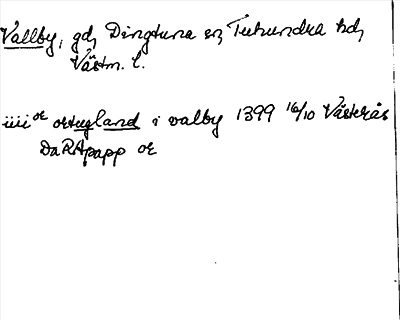 Vallby, gd, Dingtuna sn, Tuhundra hd,
Västm. l.
iiii or ortugland i valby 1399 16/10 Västerås
DaRApapp or